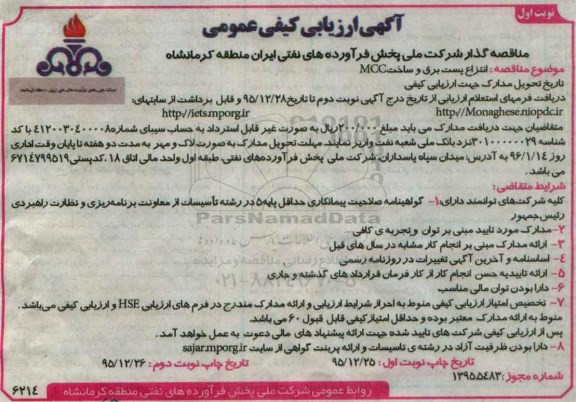 نوبت اول
آگهی ارزیابی کیفی عمومی
مناقصه گذار شرکت ملی پخش فرآورده های نفتی ایران منطقه کرمانشاه
موضوع مناقصه : انتزاع پست برق و ساخت MCC
تاریخ تحویل مدارک جهت ارزیابی کیفی
دریافت فرمهای استعلام ارزیابی از تاریخ درج آگهی نوبت دوم تا تاریخ ۹۵/۱۲/۲۸ و قابل برداشت از سایتهای:
http//Monaghese.niopdc.ir http//iets.mporg.ir
متقاضیان جهت دریافت مدارک می باید مبلغ ۲۰۰/۰۰۰ ریال به صورت غیر قابل استرداد به حساب سیبای شماره ۴۱۲۰۰۳۰۴۰۰۰۰۸ با کد
شناسه ۳۰۱۰۰۰۰۰۰۲۹ نزد بانک ملی شعبه نفت واریز نمایند. مهلت تحویل مدارک به صورت لاک و مهر به مدت دو هفته تا پایان وقت اداری
روز ۹۶/۱/۱۴ به آدرس: میدان سپاه پاسداران، شرکت ملی پخش فرآورده‌های نفتی، طبقه اول واحد مالی اتاق ۱۸، کدپستی ۶۷۱۴۷۹۹۵۱۹
می باشد.
شرایط متقاضی:
کلیه شرکت‌های توانمند دارای: ۱- گواهینامه صلاحیت پیمانکاری حداقل پایه ۵ در رشته تأسیسات از معاونت برنامه‌ریزی و نظارت راهبردی
رئیس جمهور
۲- مدارک مورد تایید مبنی بر توان و تجربه ی کافی
۳- ارائه مدارک مبنی بر انجام کار مشابه در سال های قبل
۴- اساسنامه و آخرین آگهی تغییرات در روزنامه رسمی
۵- ارائه تاییدیه حسن انجام کار از کار فرمان قرارداد های گذشته و جاری
۶- دارا بودن توان مالی مناسب
۷- تخصیص امتیاز ارزیابی کیفی منوط به احراز شرایط ارزیابی و ارائه مدارک مندرج در فرم های ارزیابی HSE و ارزیابی کیفی می‌باشد.
منوط به ارائه مدارک معتبر بوده و حداقل امتیاز کیفی قابل قبول ۶۰ می باشد.
پس از ارزیابی کیفی شرکت های تایید شده جهت ارائه پیشنهاد های مالی دعوت به عمل خواهد آمد.
۸- دارا بودن ظرفیت آزاد در رشته ی تاسیسات و ارائه پرینت گواهی از سایت sajar.mporg.ir
تاریخ چاپ نوبت اول : ۹۵/۱۲/۲۵ تاریخ چاپ نوبت دوم : ۹۵/۱۲/۲۶
شماره مجوز: ۱۳۹۵.۵۴۸۳
روابط عمومی شرکت ملی پخش فرآورده های نفتی منطقه کرمانشاه
۶۲۱۴
ParsNamadData
۰۲۱-۸۸۳۴۹۶۷۰-۵